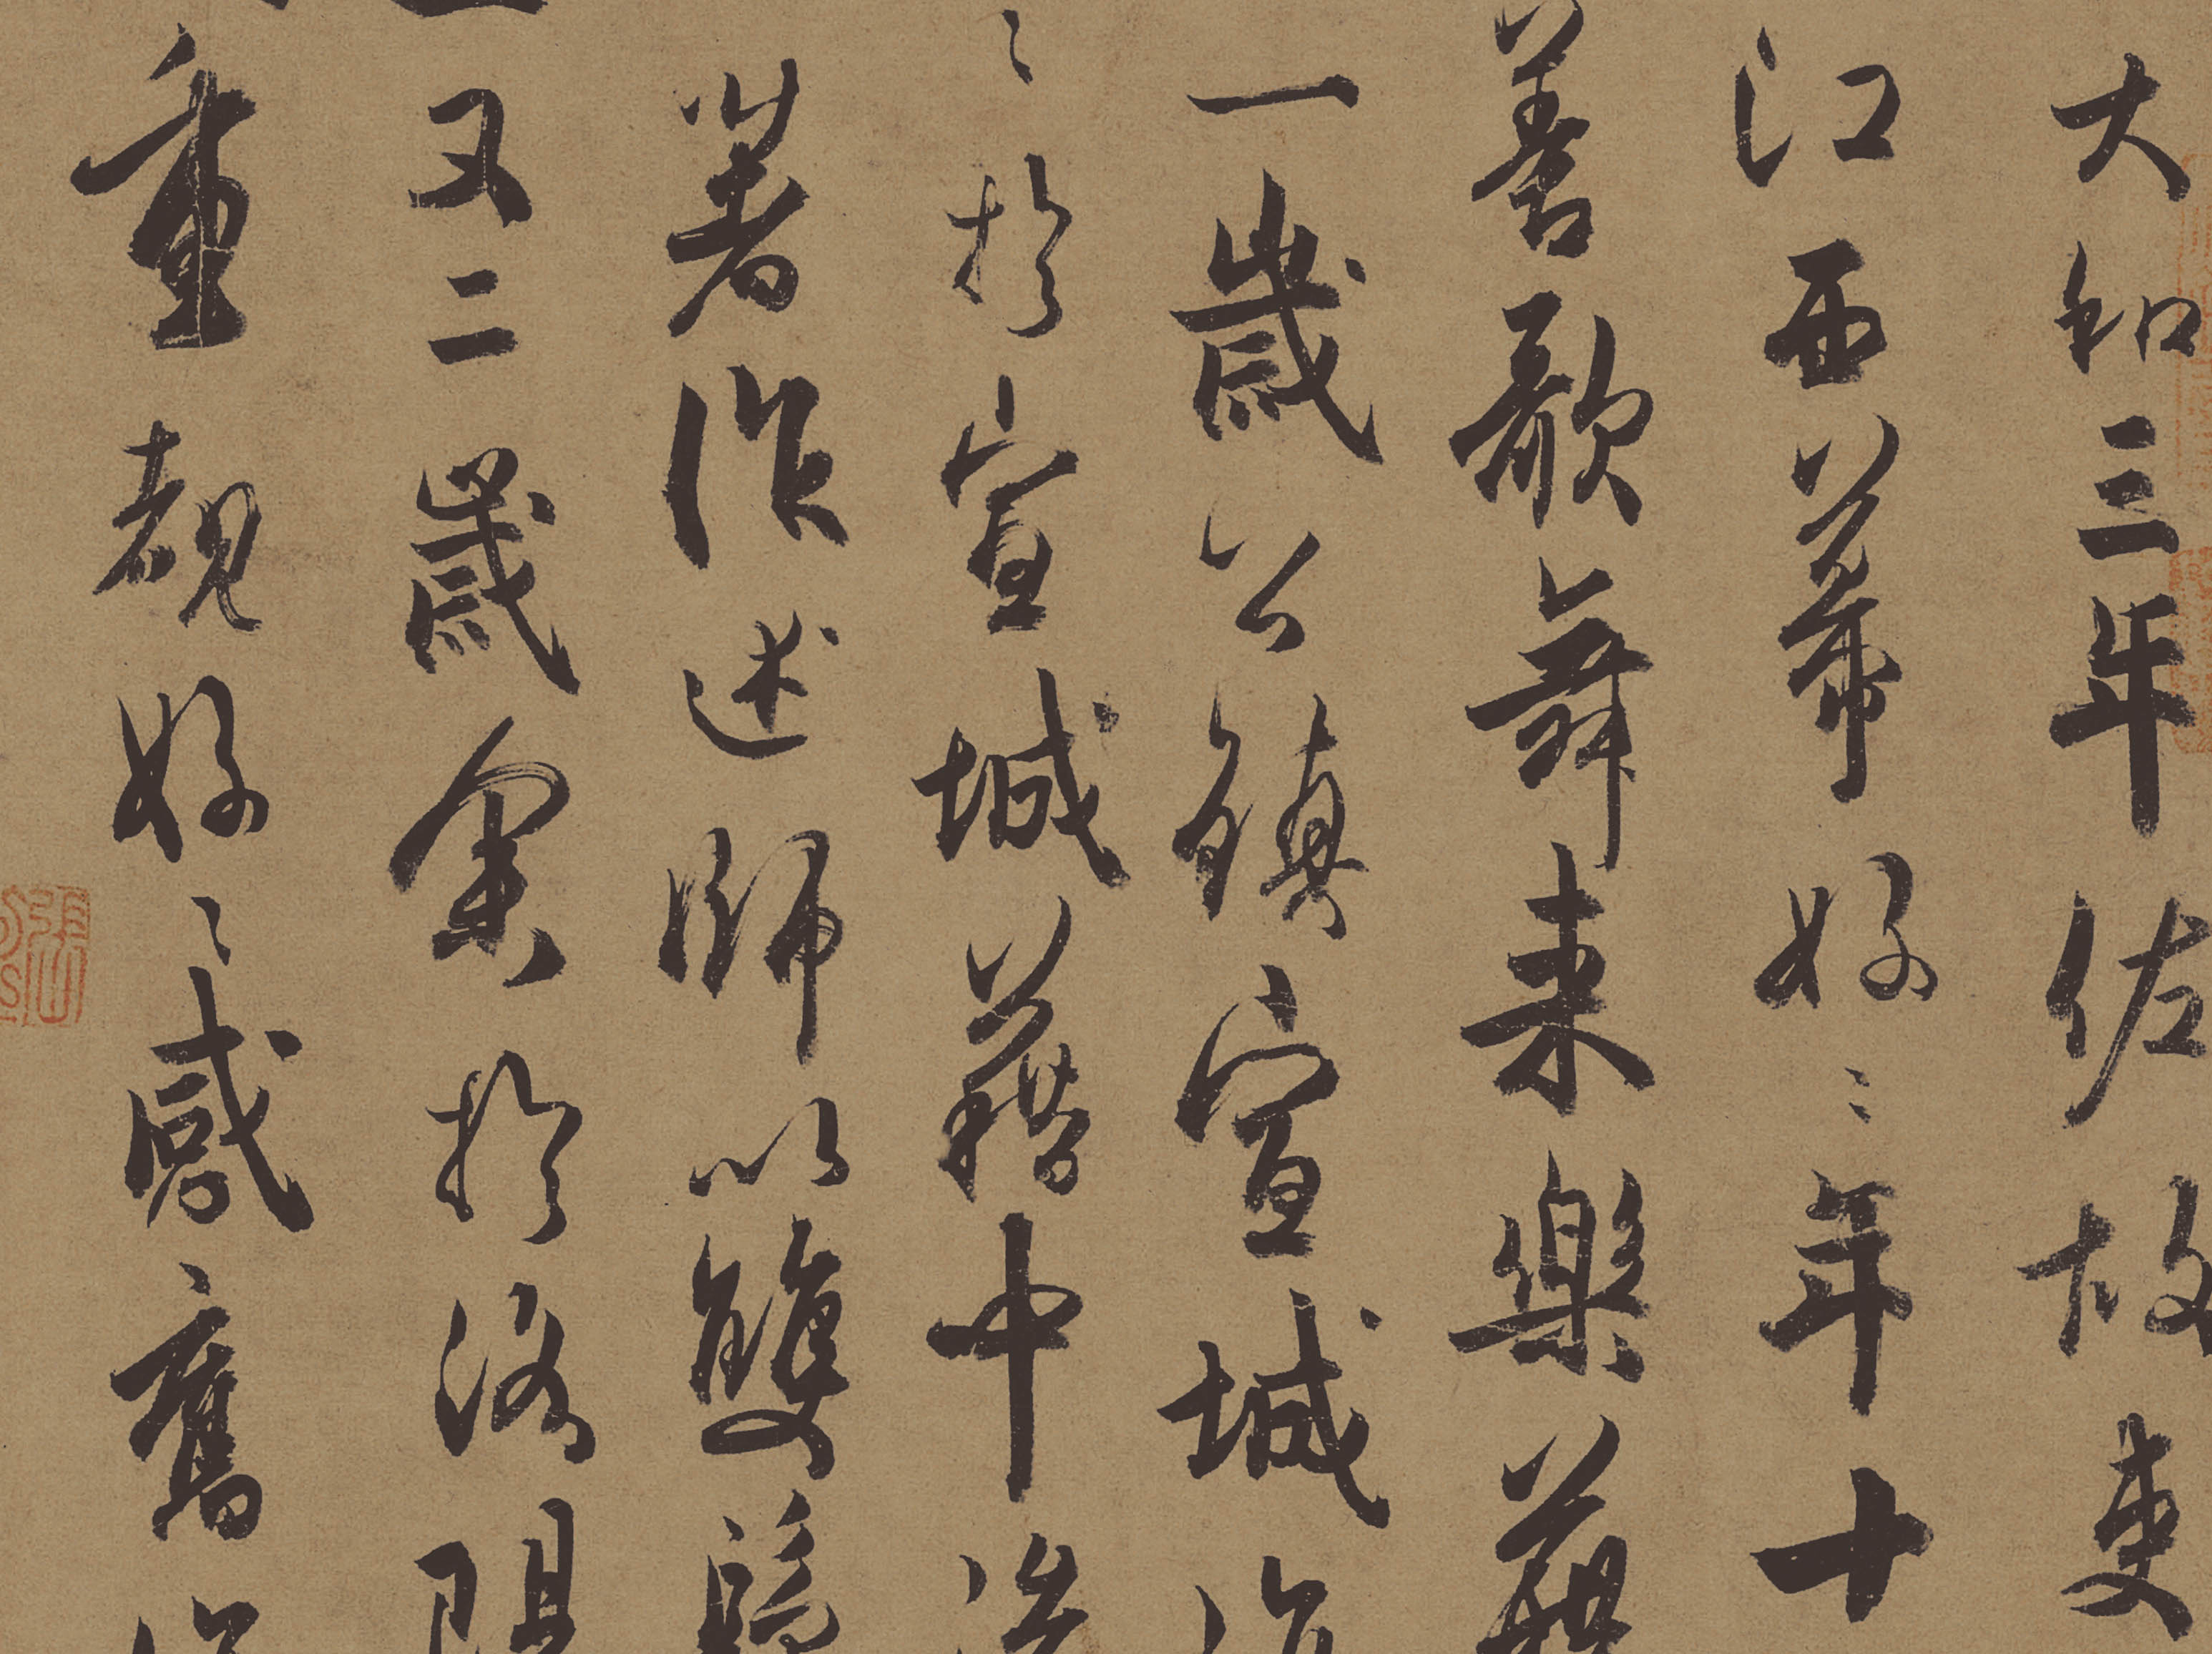 大和三年佐故吏
江西幕好〻年十
善歌舞来樂
一歲公鎮宣城
〻於宣城藉中
著作述師以雙
又二歲余於洛
重覩好〻感舊